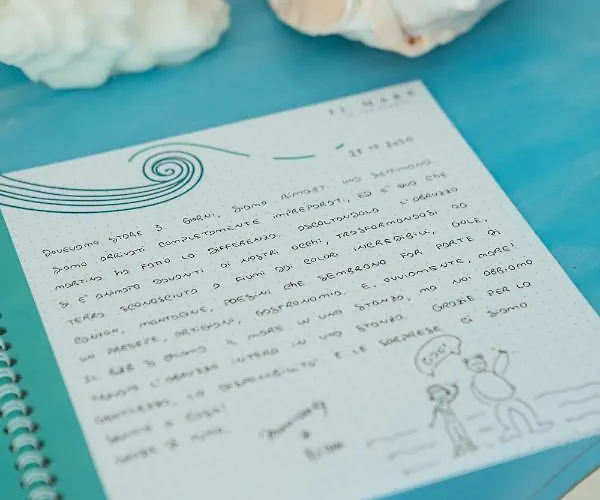 IL MARE
DOVEVAMO STARE 3 GIORNI, SIAMO RIMASTI UNA SETTIMANA.
SIAMO ARRIVATI COMPLETAMENTE IMPREPARATI, ED È QUA CHE
MARTINA HA FATTO LA DIFFERENZA. ASCOLTANDOLA L'ABRUZZO
SI È ANIMATO DAVANTI AI NOSTRI OCCHI, TRASFORMANDOSI DA
TERRA SCONOSCIUTA A FIUMI DAI COLORI INCREDIBILI, GOLE,
CANYON, MONTAGNE, PAESINI CHE SEMBRANO FAR PARTE DI
UN PRESEPE, ARTIGIANI, GASTRONOMIA E, OVVIAMENTE, MARE!
IL B&B SI CHIAMA IL MARE IN UNA STANZA, MA NOI ABBIAMO
TROVATO L'ABRUZZO INTERO IN UNA STANZA. GRAZIE PER LA
GENTILEZZA, LA DISPONIBILITÀ E LE SORPRESE. CI SIAMO
SENTITI A CASA!
CIAO!